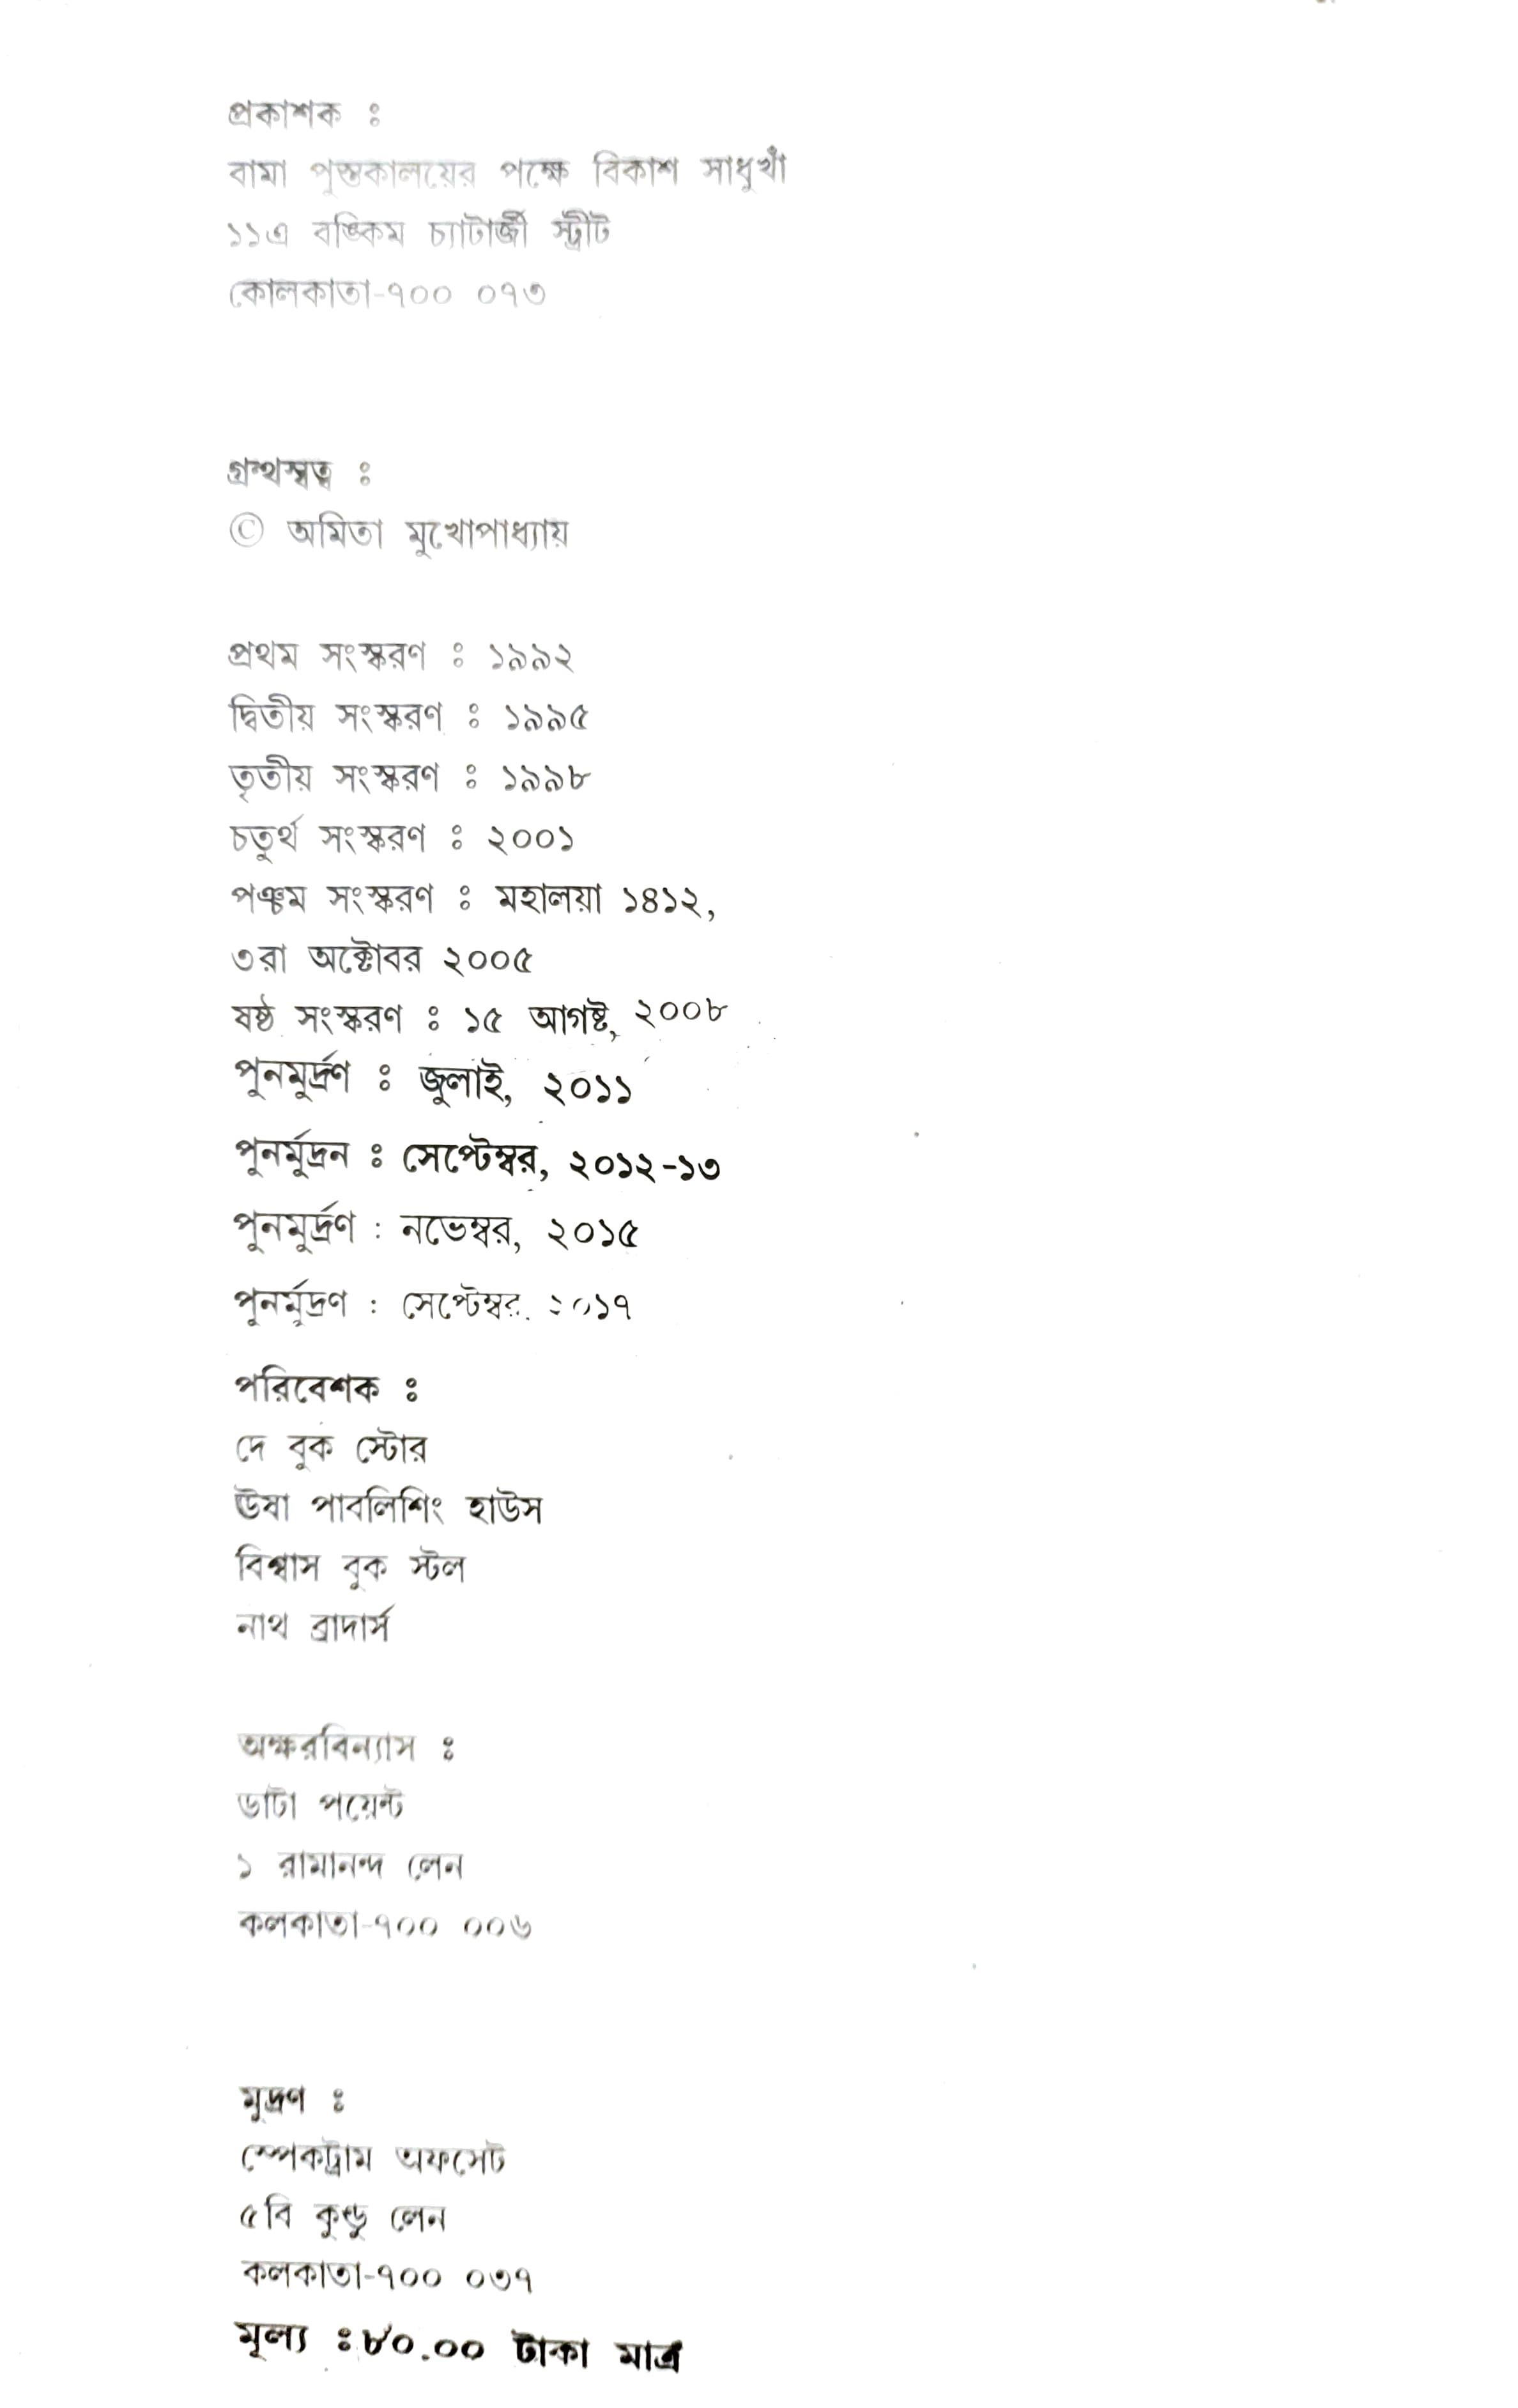 প্রকাশক ঃ
বামা পুস্তকালয়ের পক্ষে বিকাশ সাধুখাঁ
১১এ বঙ্কিম চ্যাটার্জী স্ট্রীট
কোলকাতা-৭০০ ০৭৩
গ্রন্থস্বত্ব ঃ
© অমিতা মুখোপাধ্যায়
প্রথম সংস্করণ ঃ ১৯৯২
দ্বিতীয় সংস্করণ ঃ ১৯৯৫
তৃতীয় সংস্করণ ঃ ১৯৯৮
চতুর্থ সংস্করণ ঃ ২০০১
পঞ্চম সংস্করণ ঃ মহালয়া ১৪১২,
৩রা অক্টোবর ২০০৫
ষষ্ঠ সংস্করণ ঃ ১৫ আগষ্ট, ২০০৮
পুনমুর্দ্রণ ঃ জুলাই, ২০১১
পুনর্মুদ্রন ঃ সেপ্টেম্বর, ২০১২-১৩
পুনমুর্দ্রণ : নভেম্বর, ২০১৫
পুনর্মুদ্রণ : সেপ্টেম্বর, ২০১৭
পরিবেশক ঃ
দে বুক স্টোর
ঊষা পাবলিশিং হাউস
বিশ্বাস বুক স্টল
নাথ ব্রাদার্স
অক্ষরবিন্যাস ঃ
ডাটা পয়েন্ট
১ রামানন্দ লেন
কলকাতা-৭০০ ০০৬
মুদ্রণ ঃ
স্পেকট্রাম অফসেট
৫বি কুণ্ডু লেন
কলকাতা-৭০০ ০৩৭
মূল্য ঃ ৮০.০০ টাকা মাত্র